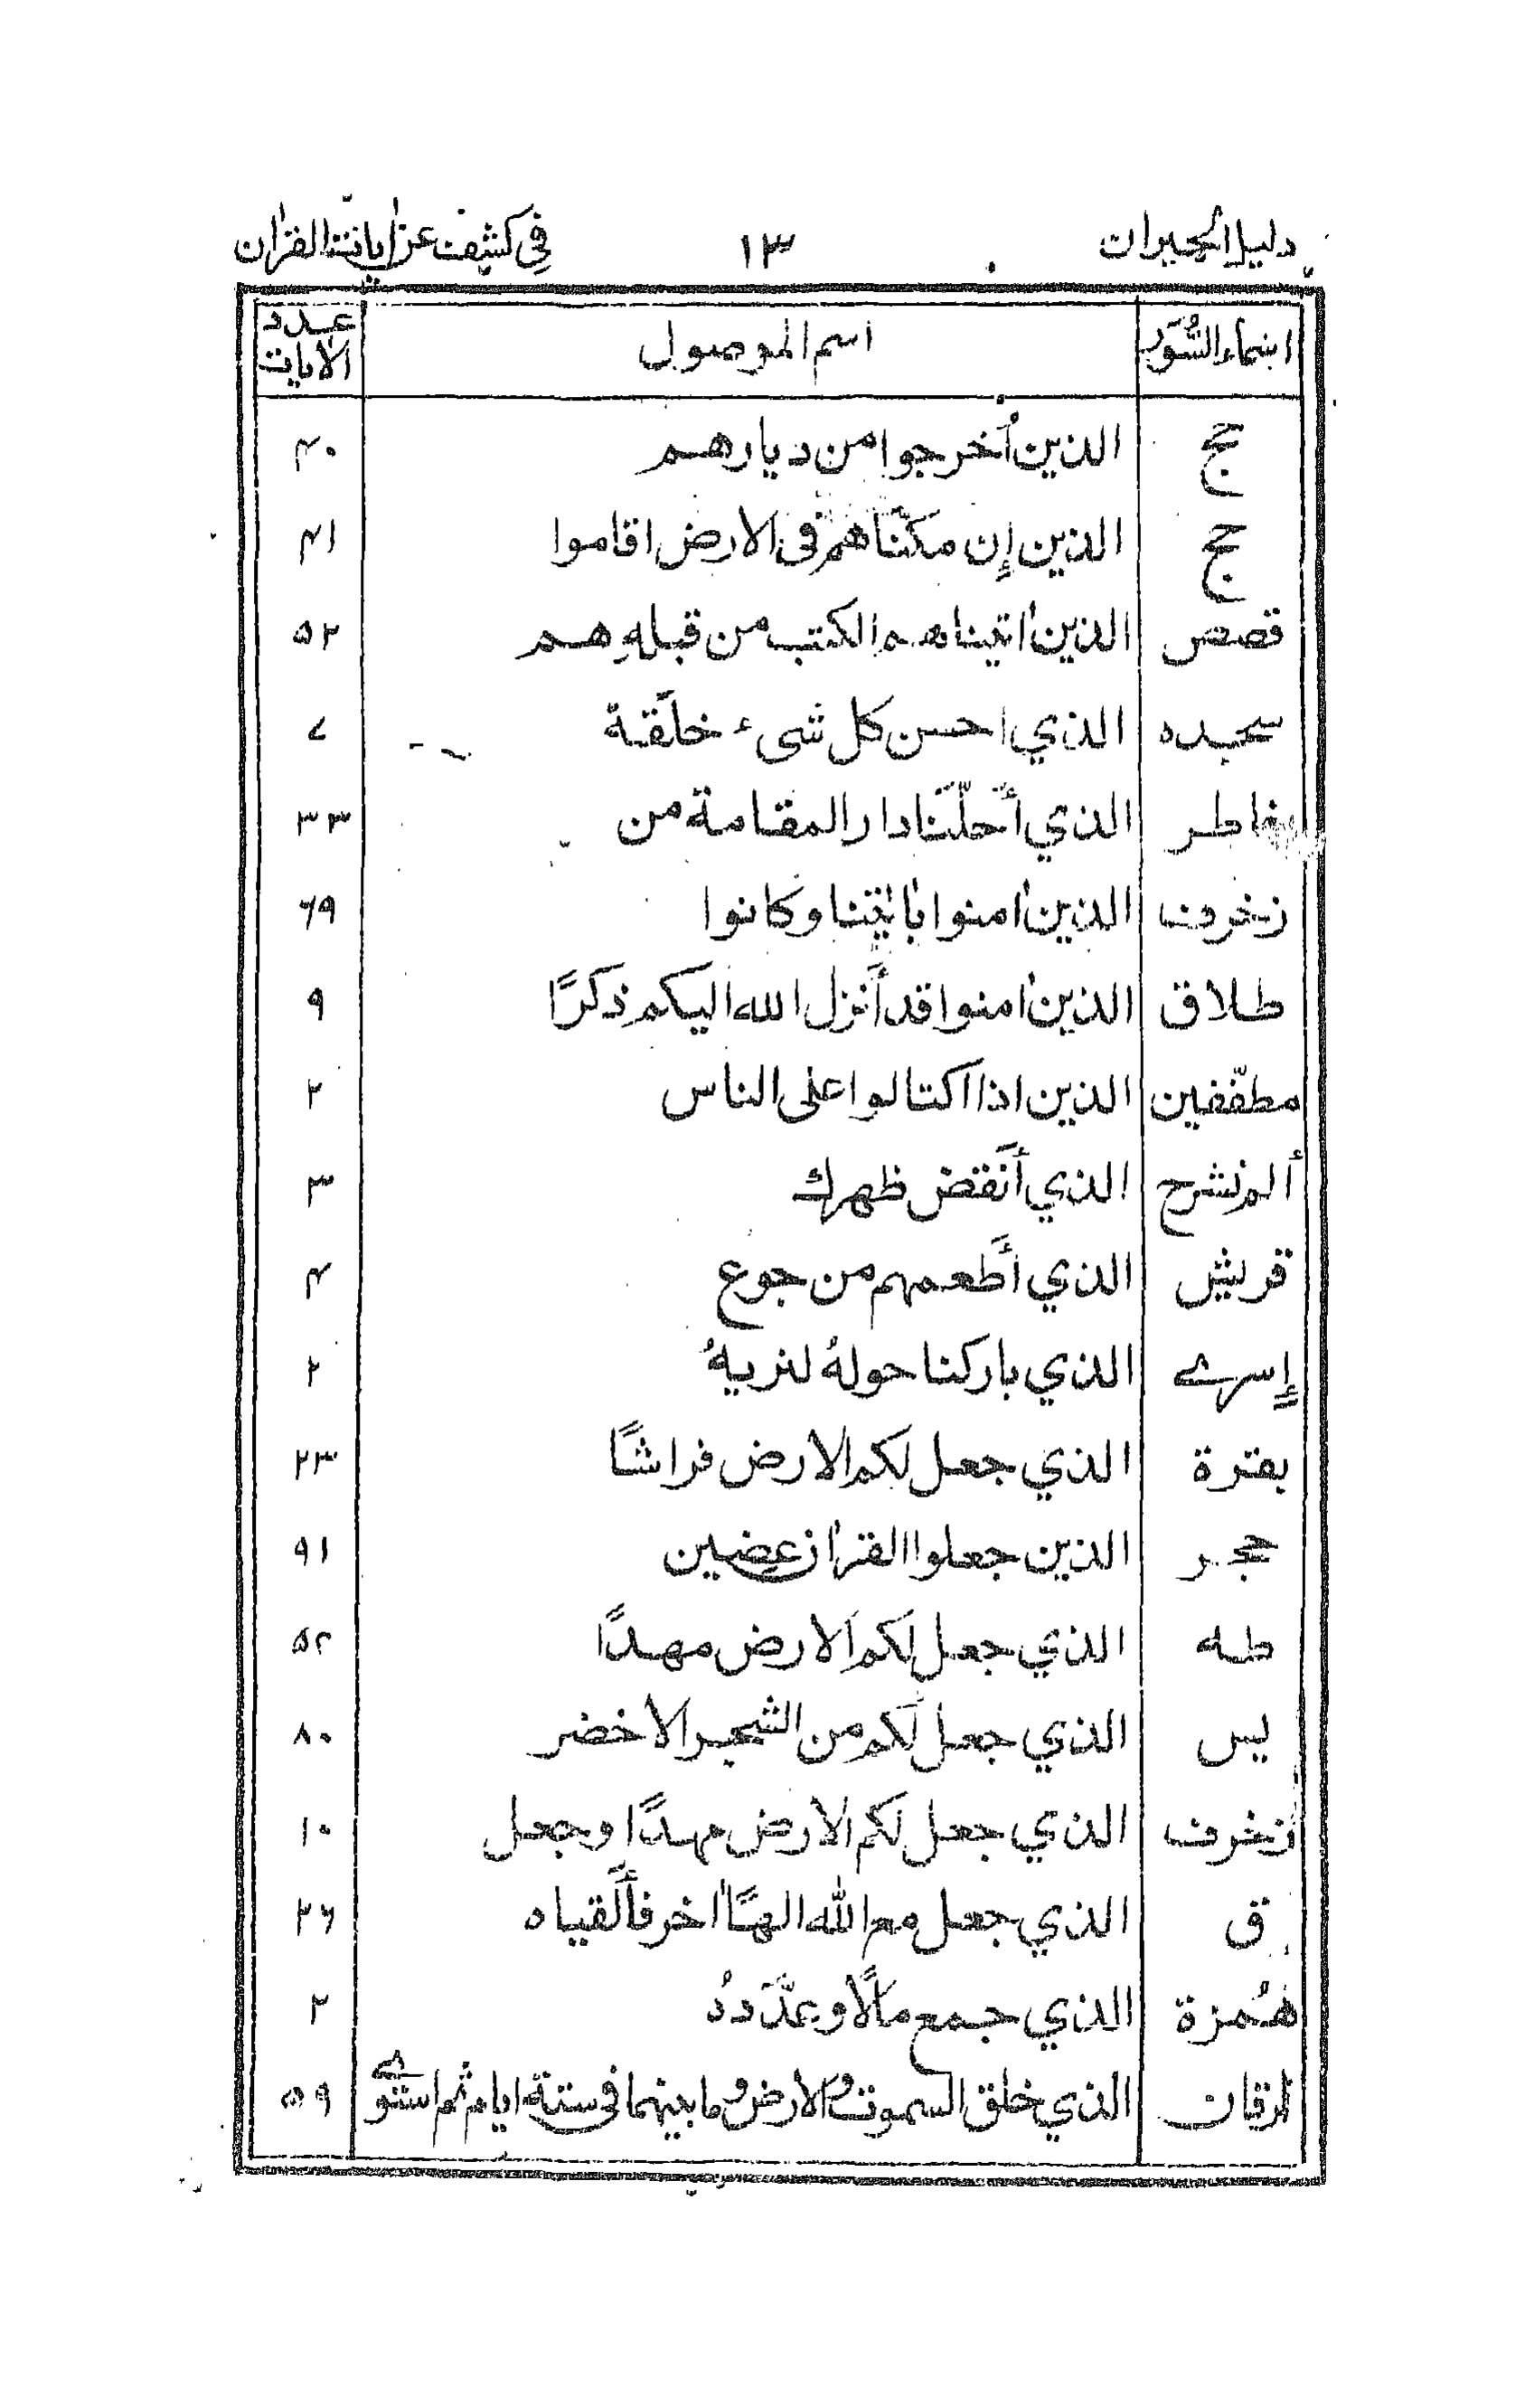 دليل الحيران ١٣ في كشف عن اٰيات القراٰن
اسماء السُّوَر اسم الموصول عدد الاٰيات
حج الذين أُخرجوا من ديارهم ۴۰
حج الذين إن مكنّاهم في الارض اقاموا ۴۱
قصص الذين اٰتيناهم الكتب من قبلهِ هم ۵۲
سجده الذي احسن كل شيء خلَقة ۷
فاطر الذي أَحلّنَا دار المقامة من ۳۳
زخرف الذين اٰمنوا باٰيٰتنا وكانوا ۶۹
طلاق الذين اٰمنوا قد أَنزل الله اليكم ذكرًا ۹
مطفّفين الذين اذا اكتالوا على الناس ۲
ألم نشرح الذي أَنقض ظهرك ۳
قريش الذي أَطعمهم من جوع ۴
إسرے الذي باركنا حولهُ لنريهُ ۲
بقرة الذي جعل لكم الارض فراشًا ۲۳
حجر الذين جعلوا القراٰن عضين ۹۱
طه الذي جعل لكم الارض مهدًا ۵۲
يس الذي جعل لكم من الشجر الاخضر ۸۰
زخرف الذي جعل لكم الارض مهدًا وجعل ۱۰
ق الذي جعل مع الله الهًا اٰخر فأَلقياه ۲۶
هُمزة الذي جمع مالًا وعدَّدهُ ۲
فرقان الذي خلق السموت والارض وما بينهما في ستة ايام ثم استوے ۵۹